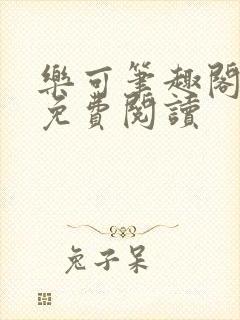 樂可筆趣閣
免費閱讀
兔子呆